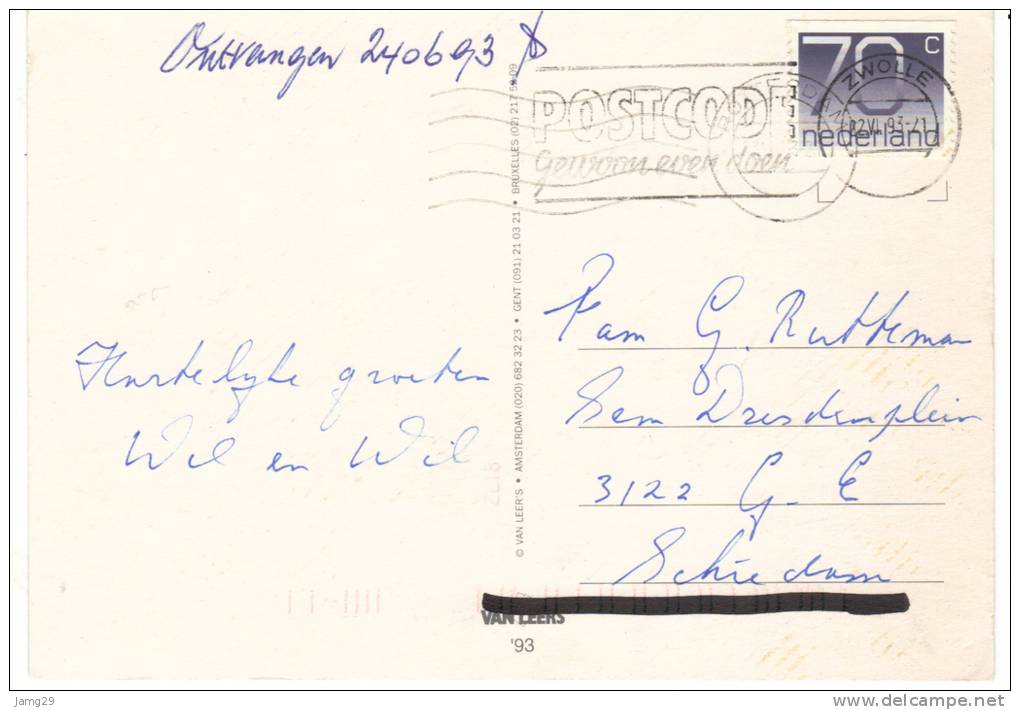 Ontvangen 240693
70 c
nederland
ZWOLLE
22VI.93-21
POSTCODE
gewoon even doen
Fam G. Rutteman
Sem Dresdenplein
3122 G-E
Schiedam
Hartelijke groeten
Wil en Wil
© VAN LEER'S • AMSTERDAM (020) 682 32 23 • GENT (091) 21 03 21 • BRUXELLES (02) 217 59 09
VAN LEERS
'93
jamg29
delcampe.net